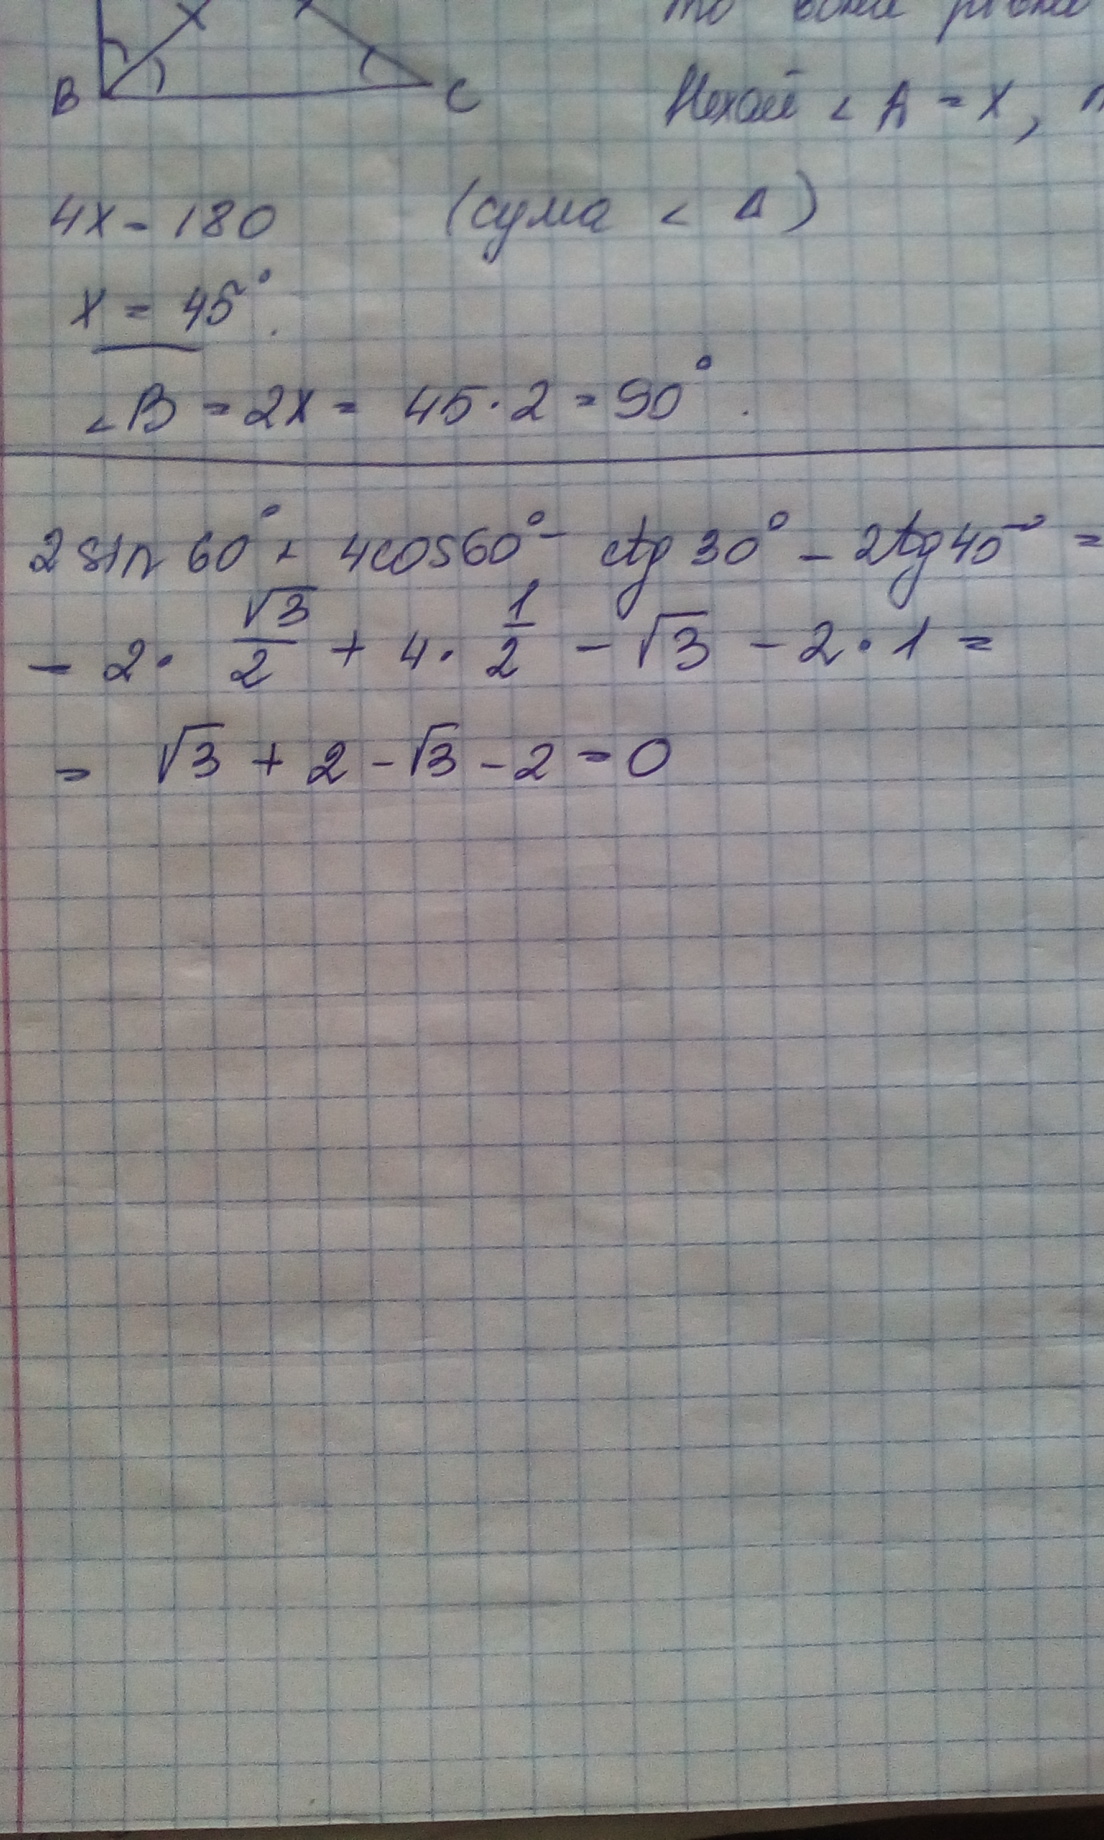 то вони рівні
B
C
Нехай < A = x,
4x - 180 (сума < Δ)
x = 45°.
<B = 2x = 45·2 = 90°.
2 sin 60° + 4cos60° - ctg 30° - 2tg 45° =
= 2· √3/2 + 4· 1/2 - √3 - 2·1 =
= √3 + 2 - √3 - 2 = 0